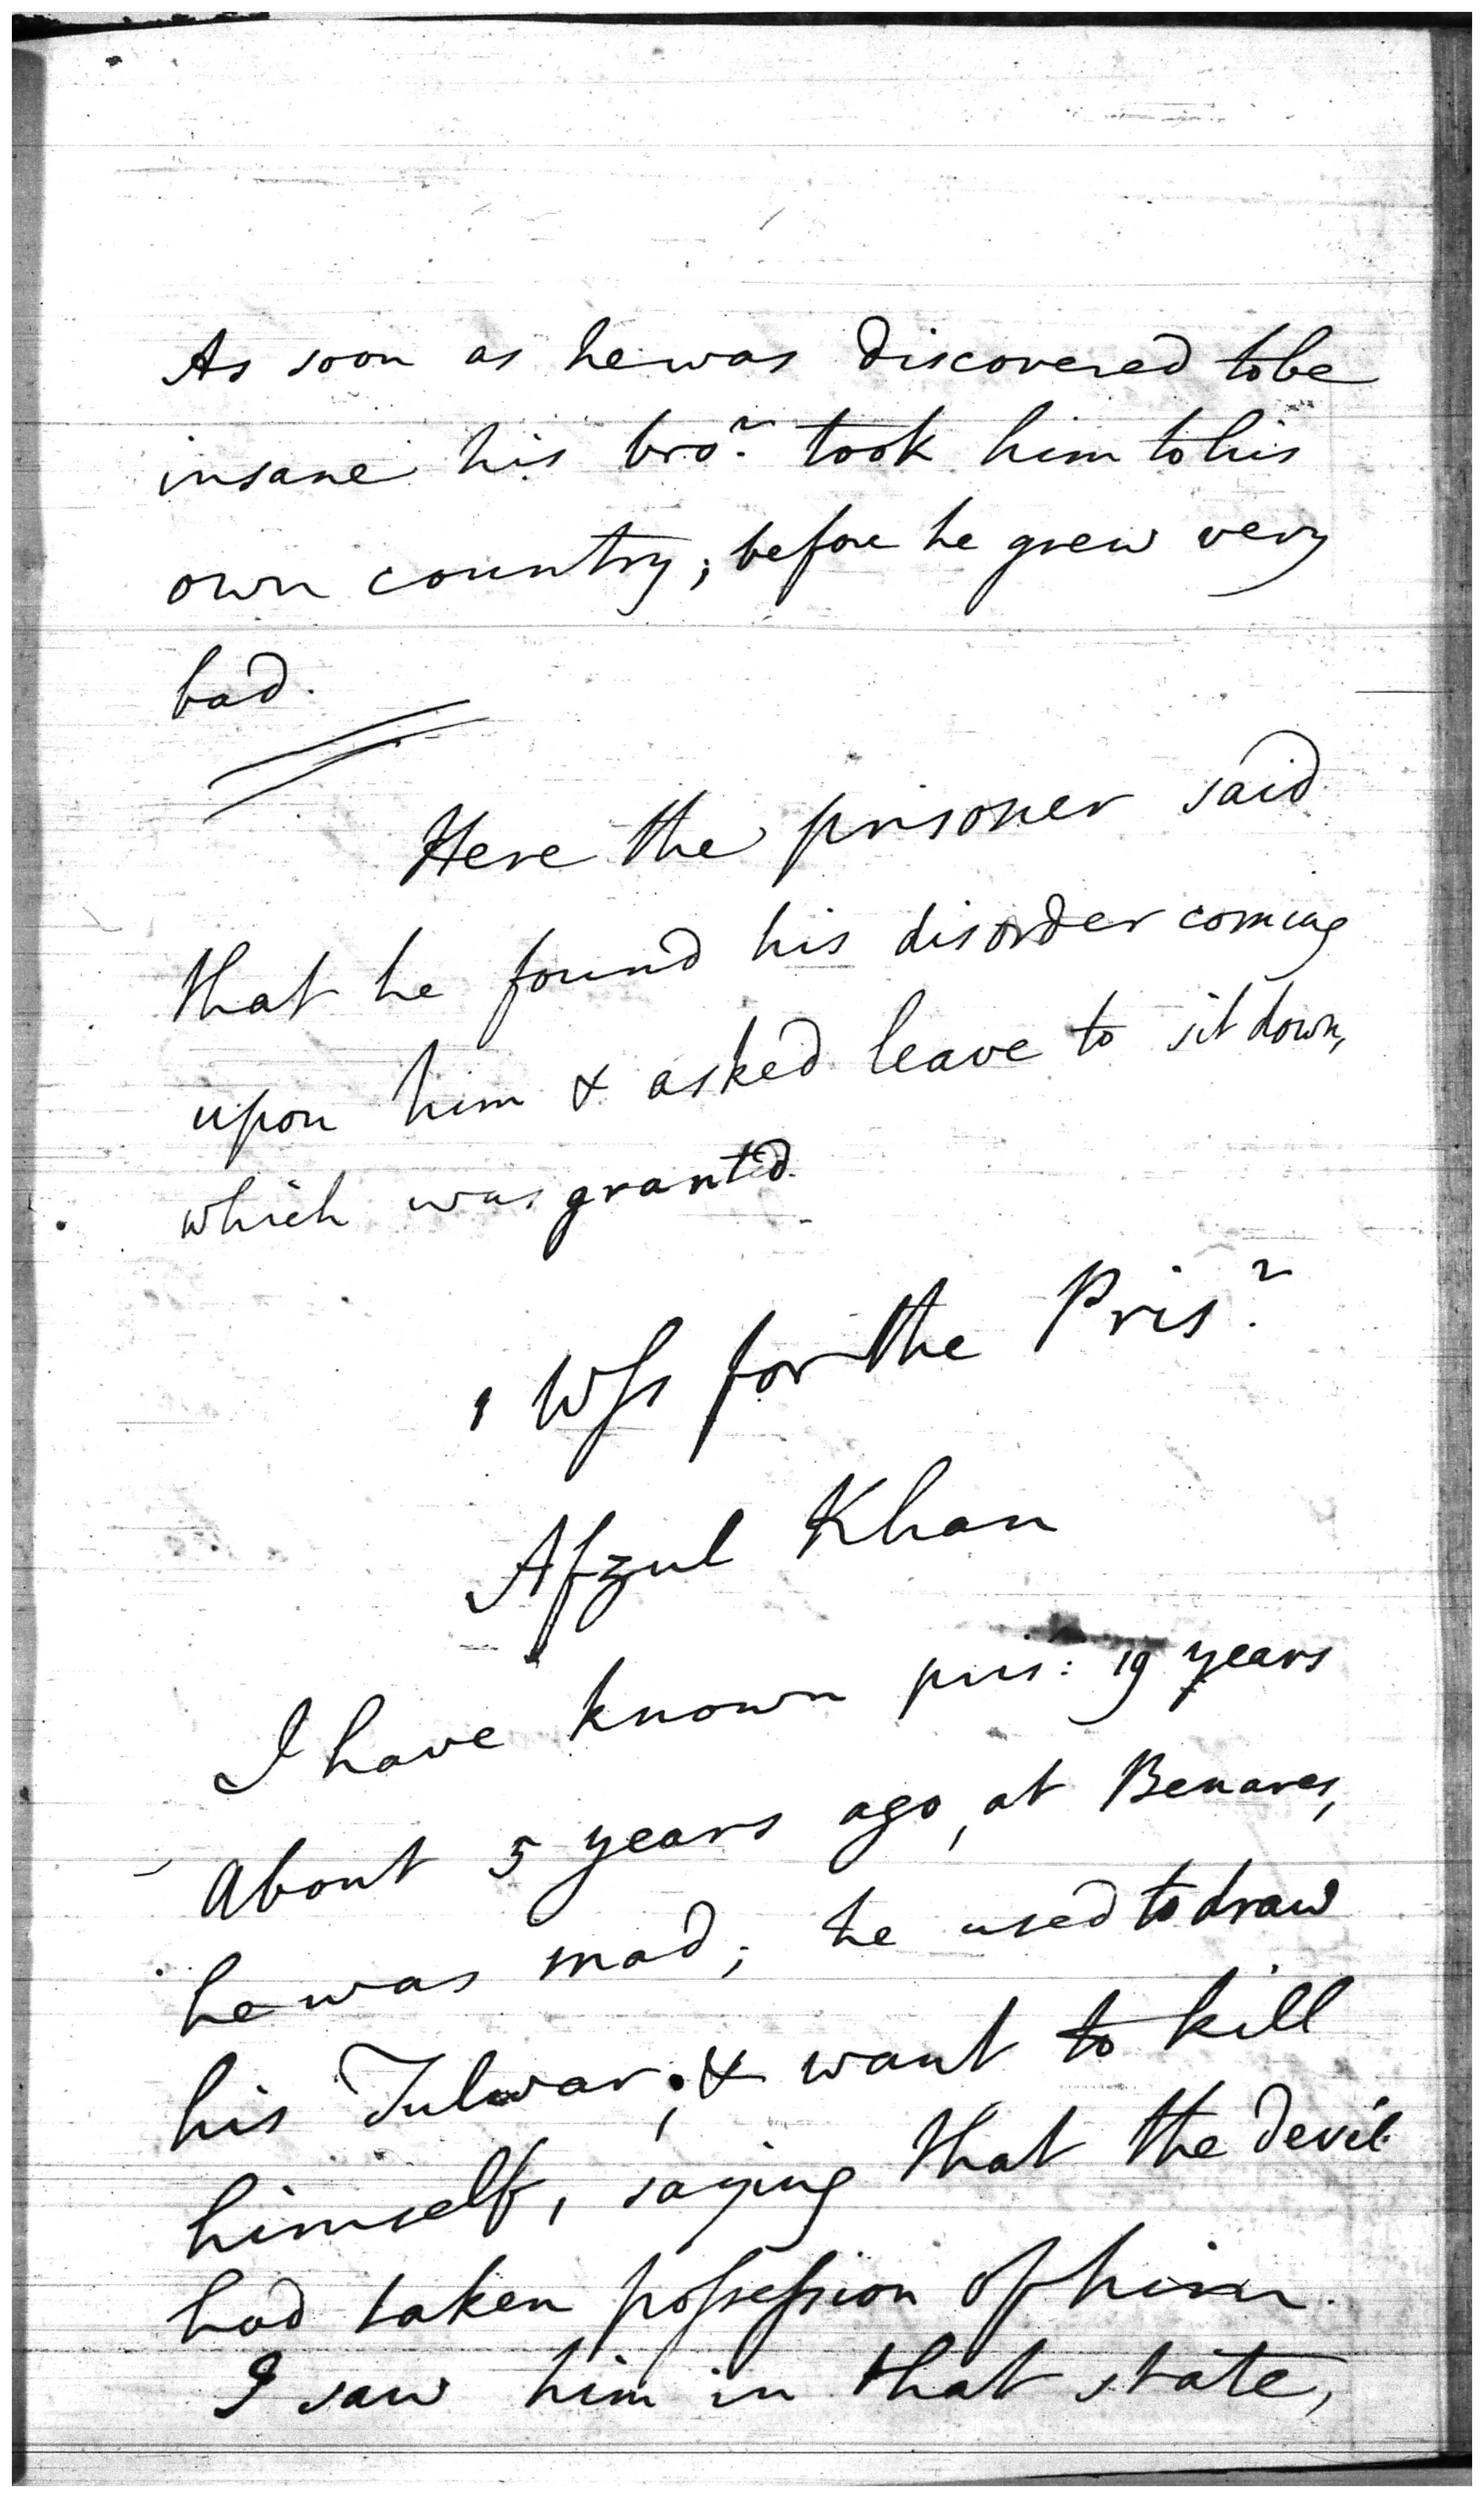 As soon as he was discovered to be
insane his bro.r took him to his
own country; before he grew very
bad.
Here the prisoner said
that he found his disorder coming
upon him & asked leave to sit down,
which was granted.
1 Wss for the Pris.r
Afzul Khan
I have known pris: 19 years
About 5 years ago, at Benares,
he was mad; he used to draw
his Tulwar; & want to kill
himself, saying that the devil
had taken possession of him.
I saw him in that state,